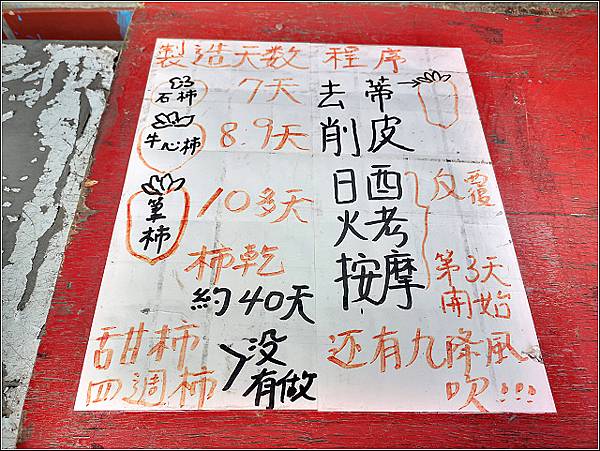 製造天数 程序
石柿 7天
牛心柿 8.9天
筆柿 10多天
柿乾
約40天
甜柿
四週柿
没
有做
去蒂
削皮
日洒
火考
按摩
反覆
第3天
開始
还有九降風
吹!!!